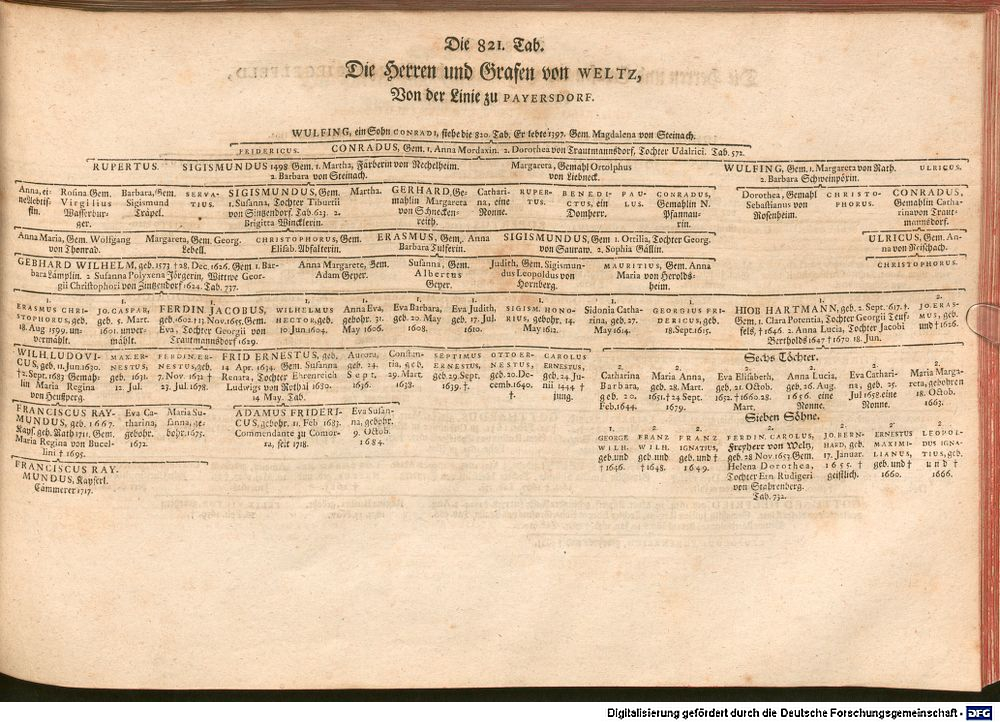 Die 821. Tab.
Die Herren und Grafen von WELTZ,
Von der Linie zu PAYERSDORF.
WULFING, ein Sohn CONRADI, siehe die 820. Tab. Er lebte 1397. Gem. Magdalena von Steinach.
FRIDERICUS. CONRADUS, Gem. 1. Anna Mordaxin. 2. Dorothea von Trautmannsdorf, Tochter Udalrici. Tab. 572.
RUPERTUS. SIGISMUNDUS 1498 Gem. 1. Martha, Färberin von Rechelheim.
2. Barbara von Steinach.
Margareta, Gemahl Ortolphus
von Liebneck.
WULFING, Gem. 1. Margareta von Rath.
2. Barbara Schweinpöxin.
ULRICUS.
Anna, ei-
ne Aebtis-
sin.
Rosina Gem.
Virgilius
Wasserbur-
ger.
Barbara, Gem.
Sigismund
Träpel.
SERVA-
TIUS.
SIGISMUNDUS, Gem.
1. Susanna, Tochter Tiburtii
von Sintzendorf. Tab. 623. 2.
Brigitta Wincklerin.
Martha.
GERHARD, Ge-
mahlin Margareta
von Schnecken-
reith.
Cathari-
na, eine
Nonne.
RUPER-
TUS.
BENEDI-
CTUS, ein
Domherr.
PAU-
LUS.
CONRADUS,
Gemahlin N.
Pfannau-
rin.
Dorothea, Gemahl
Sebastianus von
Rosenheim.
CHRISTO-
PHORUS.
CONRADUS,
Gemahlin Catha-
rina von Traut-
mannsdorf.
Anna Maria, Gem. Wolfgang
von Thonrad.
Margareta, Gem. Georg.
Lebell.
CHRISTOPHORUS, Gem.
Elisab. Absalterin.
ERASMUS, Gem. Anna
Barbara Tulserin.
SIGISMUNDUS, Gem 1. Ottilia, Tochter Georg.
von Sauraw. 2. Sophia Gällin.
ULRICUS, Gem. An-
na von Reischach.
GEBHARD WILHELM, geb. 1573 † 28. Dec. 1626. Gem 1. Bar-
bara Lämplin. 2. Susanna Polyxena Jörgerin, Wittwe Geor-
gii Christophori von Zintzendorf 1624. Tab. 737.
Anna Margareta, Gem.
Adam Geyer.
Susanna, Gem.
Albertus
Geyer.
Judith, Gem. Sigismun-
dus Leopoldus von
Hornberg.
MAURITIUS, Gem. Anna
Maria von Herolds-
heim.
CHRISTOPHORUS.
1.
ERASMUS CHRI-
STOPHORUS, geb.
18. Aug 1599. un-
vermählt.
1.
JO. CASPAR,
geb. 5. Mart.
1601. unver-
mählt.
1.
FERDIN JACOBUS,
geb. 1602 † 13 Nov. 1655. Gem.
Eva, Tochter Georgii von
Trautmannsdorf 1629.
1.
WILHELMUS
HECTOR, geb.
10 Jun. 1604.
1.
Anna Eva,
gebohr. 31.
May 1606.
1.
Eva Barbara,
geb. 20. May
1608.
1.
Eva Judith,
geb. 17. Jul.
1610.
1.
SIGISM. HONO-
RIUS, gebohr. 14.
May 1612.
1.
Sidonia Catha-
rina, geb. 27.
May 1614.
1.
GEORGIUS FRI-
DERICUS, geb.
18. Sept. 1615.
1.
HIOB HARTMANN, geb. 2. Sept. 1617. †.
Gem. 1. Clara Potentia, Tochter Georgii Teuf-
fels, † 1646. 2. Anna Lucia, Tochter Jacobi
Bertholds 1647 † 1670 18. Jun.
2.
JO. ERAS-
MUS, geb.
und † 1626.
WILH. LUDOVI-
CUS, geb. 11. Jun. 1630.
† 2. Sept. 1683 Gemah-
lin Maria Regina
von Heußperg.
MAX. ER-
NESTUS,
geb. 1631.
12. Jul.
FERDIN. ER-
NESTUS, geb.
7. Nov. 1632 †
23. Jul. 1678.
FRID ERNESTUS, geb.
14 Apr. 1634. Gem. Susanna
Renata, Tochter Ehrenreich
Ludwigs von Rethal 1680.
14 May. Tab.
Aurora,
geb. 24.
Sept.
1636.
Constan-
tia, geb.
29. Mart.
1638.
SEPTIMUS
ERNESTUS,
geb. 29. Sept.
1639. †.
OTTO ER-
NESTUS,
geb. 20. De-
cemb. 1640.
†.
CAROLUS
ERNESTUS,
geb. 24. Ju-
nii 1444 †
jung.
Sechs Töchter.
2.
Catharina
Barbara,
geb. 20.
Feb. 1644.
2.
Maria Anna,
geb. 28. Mart.
1651. † 24 Sept.
1679.
2.
Eva Elisabeth,
geb. 21. Octob.
1652. † 1660. 28.
Mart.
2.
Anna Lucia,
geb. 26. Aug.
1656. eine
Nonne.
2.
Eva Cathari-
na, geb. 25.
Jul 1658. eine
Nonne.
2.
Maria Marga-
reta, gebohren
18. Octob.
1663.
FRANCISCUS RAY-
MUNDUS, geb. 1667.
Kays. geh. Rath 1711. Gem.
Maria Regina von Bucel-
lini † 1695.
Eva Ca-
tharina,
gebohr.
1672.
Maria Su-
sanna, ge-
bohr. 1675.
ADAMUS FRIDERI-
CUS, gebohr. 11. Feb 1683.
Commendante zu Comor-
ra, seit 1718.
Eva Susan-
na, gebohr.
9. Octob.
1684.
Sieben Söhne.
1.
GEORGE
WILH.
geb. und
† 1646.
2.
FRANZ
WILH.
geb. und
† 1648.
2.
FRANZ
IGNATIUS,
geb. und †
1649.
2.
FERDIN. CAROLUS,
Freyherr von Weltz,
geb. 28 Nov. 1653. Gem.
Helena Dorothea,
Tochter Ern Rudigeri
von Stahrenberg.
Tab. 732.
2.
JO. BERN-
HARD, geb.
17. Januar.
1655. †
geistlich.
2.
ERNESTUS
MAXIMI-
LIANUS,
geb. und †
1660.
2.
LEOPOL-
DUS IGNA-
TIUS, geb.
und †
1666.
FRANCISCUS RAY-
MUNDUS, Kayserl.
Cämmerer 1717.
Digitalisierung gefördert durch die Deutsche Forschungsgemeinschaft - DFG